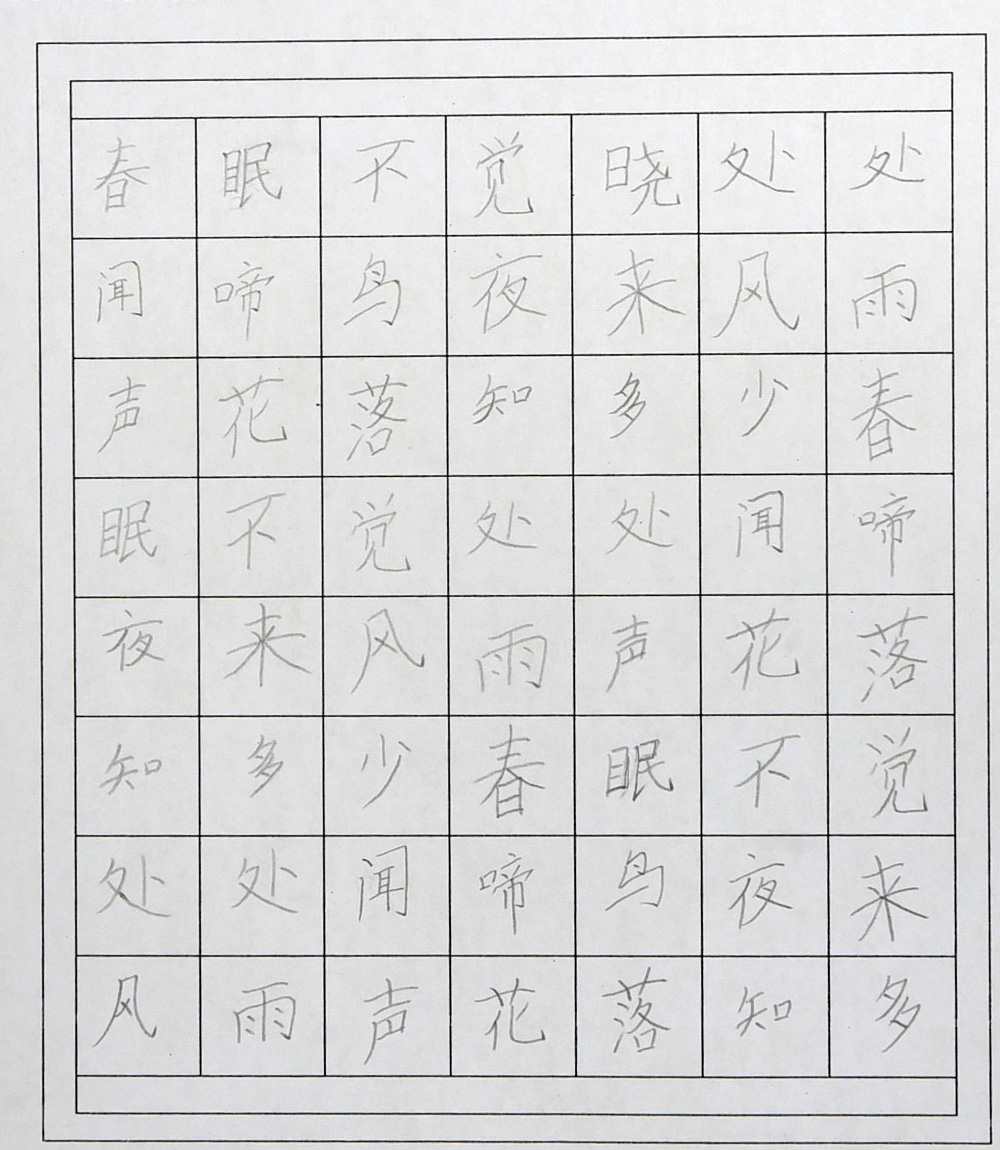 春眠不觉晓处处
闻啼鸟夜来风雨
声花落知多少春
眠不觉处处闻啼
夜来风雨声花落
知多少春眠不觉
处处闻啼鸟夜来
风雨声花落知多